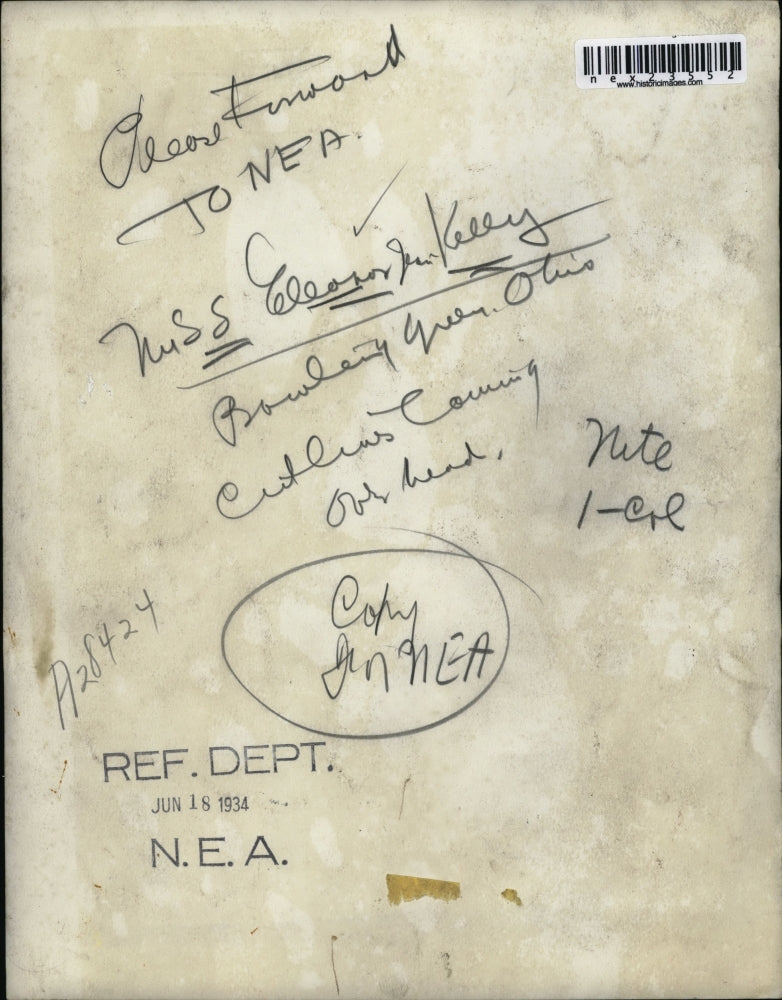 nex23552
www.historicimages.com
Please Forward
TO NEA.
Miss Eleanor Jean Kelly
Bowling Green. Ohio
Cutlines Coming
Over head.
Nite
1-Col
Copy
For NEA
A28424
REF. DEPT.
JUN 18 1934
N. E. A.